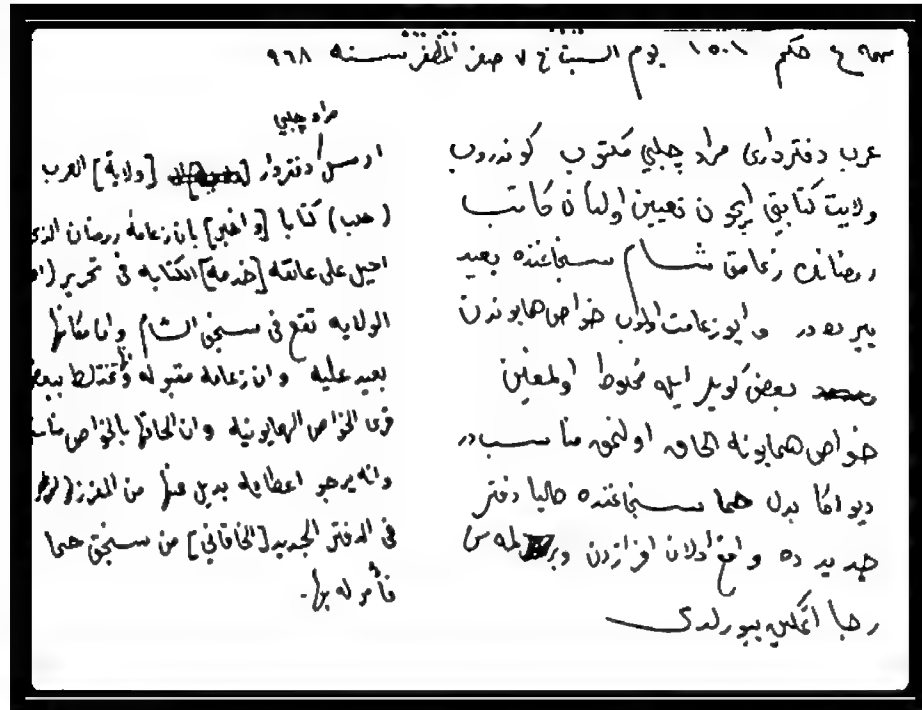 حكم ١٥٠١ يوم السبت ٧ صفر المظفر سنه ٩٦٨
عرب دفترداری مراد چلبي مكتوب كوندروب
ولايت كتابتي ايچون تعيين اولنان كاتب
رمضانك زعامتی شام سنجاغنده بعيد
يير ده در و ايو زعامت اولوب خواص همايوندن
بعض كويلر ايله مخلوط اولمغين
خواص همايونه الحاق اولنمق مناسبدر
ديو اكا بدل حما سنجاغنده حاليا دفتر
جديد ده واقع اولان افرازدن
رجا اتمكين بيورلدی
مراد چلبي
ارسل دفتردار [ولاية] العرب
(حلب) كتابا [و اخبر] بان زعامة رمضان الذي
احيل على عاتقه [خدمة] الكتابه في تحرير
الولايه تقع في سنجق الشام وان مكانها
بعيد عليه وان زعامته مختلط ببعض
قرى الخواص الهمايونيه وان الحاقها بالخواص مناسب
وانه يرجو اعطائه بديل عنها من المفرز
في الدفتر الجديد [الخاقاني] من سنجق حما
فأمر له بها.